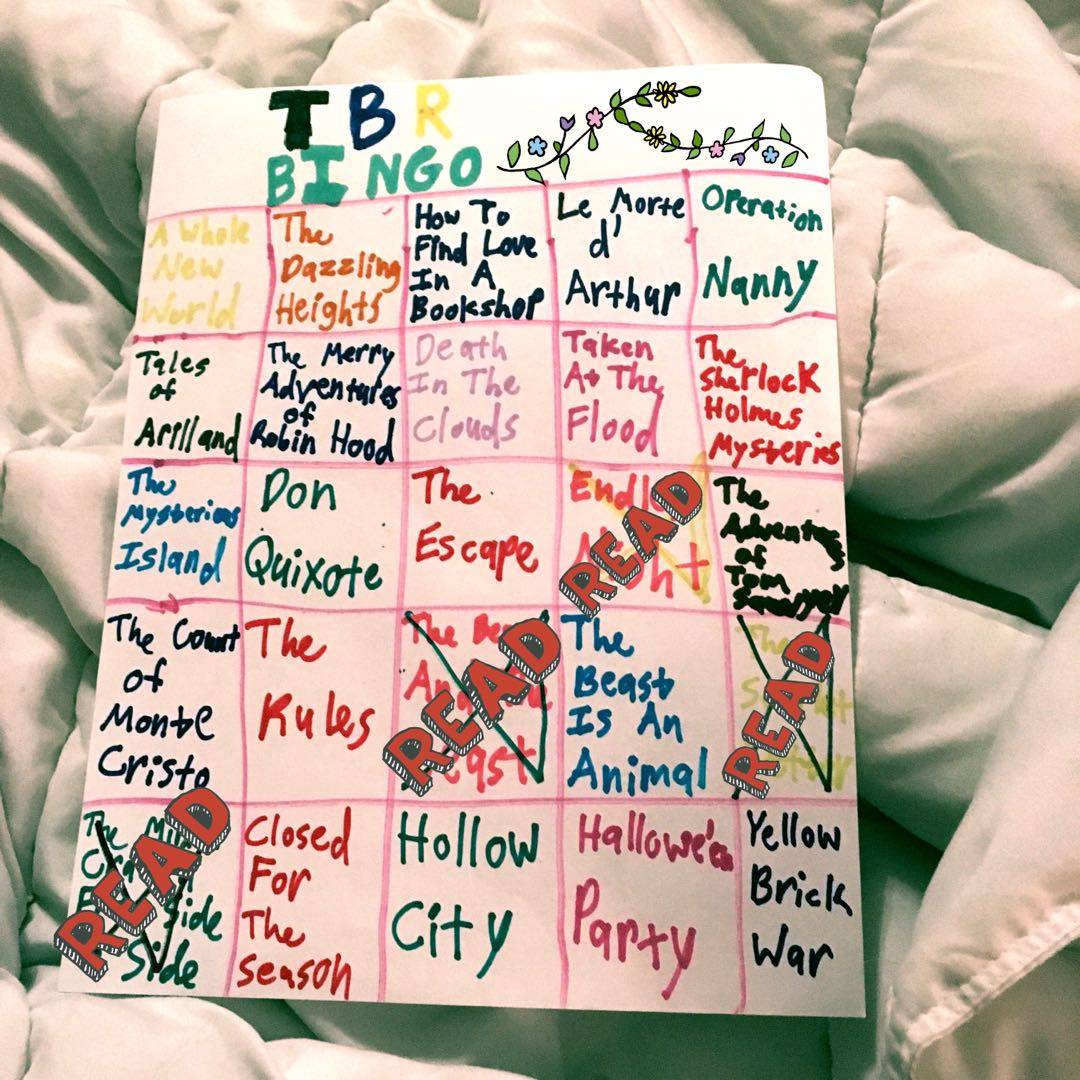 TBR
BINGO
A Whole
New
World
The
Dazzling
Heights
How To
Find Love
In A
Bookshop
Le Morte
d'
Arthur
Operation
Nanny
Tales
of
Arilland
The Merry
Adventures
of
Robin Hood
Death
In The
Clouds
Taken
At The
Flood
The
Sherlock
Holmes
Mysteries
The
Mysterious
Island
Don
Quixote
The
Escape
READ
The
of
Tom
The Count
of
Monte
Cristo
The
Rules
The
READ
The
Beast
Is An
Animal
The
READ
READ
Side
Side
Closed
For
The
season
Hollow
City
Hallowe'en
Party
Yellow
Brick
War